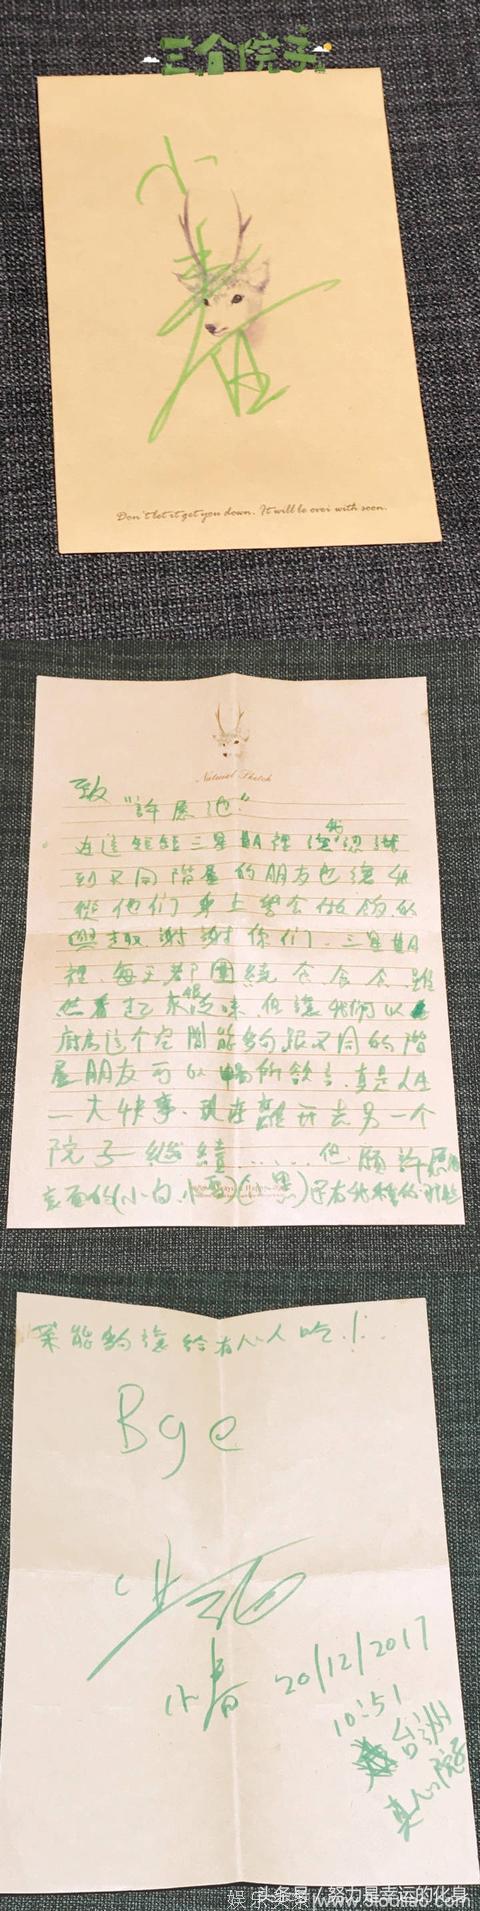 三个院子
小春
Don't let it get you down. It will be over with soon.
Natural Sketch
致
"許愿池"
在這短短三星期裡讓我認識
到不同階層的朋友也讓我
從他们身上學会做飯的
興趣謝謝你们、三星期
裡、每天都圍繞 食、食、食、雖
然看起來很乏味、但讓我們以
厨房這个空間能夠跟不同的階
層朋友可以暢所欲言、真是人生
一大快事、現在離开去另一个
院子继續......但願許愿池
裏面的(小白、小黑)還有我種的那些
菜能夠讓給有心人吃!
Bye
小春 20/12/2017
10:51
台洲
真心院子
头条号 / 努力是幸运的化身